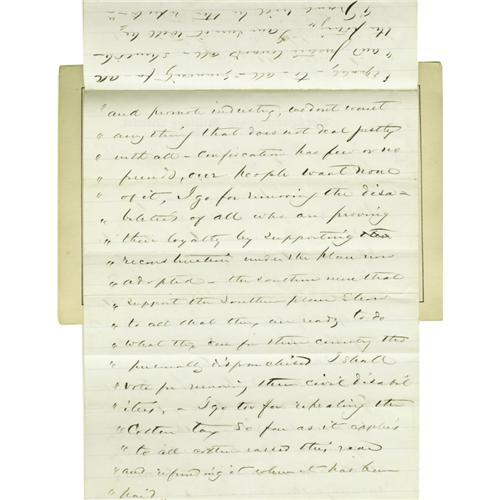 Equality - to - all - Immunity for all
"and Justice towards all - should be
the firing" I am sure it will be
"
"and promote industry, wedont want
"anything that does not deal justly
"with all - confiscation has few or no
"freinds, our people want none
"of it, I go for removing the disa=
"bilities of all who are proving
"their loyalty by supporting
"reconstruction under the plan now
"adopted - the southern men that
"support the southern plan Show
"to all that they are ready to do
"what they can for their country tho
"personally disfranchised I shall
"Vote for removing their civil disabil
"ities, & I go too for repealing the
"Cotton tax So far as it applies
"to all cotton raised this year
"and refunding it where it has been
"paid